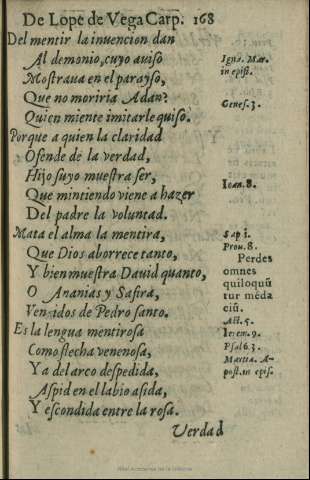 De Lope de Vega Carp. 168
Del mentir la inuencion dan
Al demonio, cuyo auiso
Mostraua en el parayso,
Que no moriria Adan?
Quien miente imitarle quiso.
Porque a quien la claridad
Ofende de la verdad,
Hijo suyo muestra ser,
Que mintiendo viene a hazer
Del padre la voluntad.
Mata el alma la mentira,
Que Dios aborrece tanto,
Y bien muestra Dauid quanto,
O Ananias y Safira,
Venzidos de Pedro santo.
Es la lengua mentirosa
Como flecha venenosa,
Ya del arco despedida,
Aspid en el labio asida,
Y escondida entre la rosa.
Verdad
Igna. Mar.
in epist.
Genes. 3.
Ioan. 8.
Sap 1.
Prou. 8.
Perdes
omnes
quiloquũ
tur mẽda
ciũ.
Act. 5.
Ierem. 9.
Psal 63.
Martia. A-
post. in epis.
Real Academia de la Historia